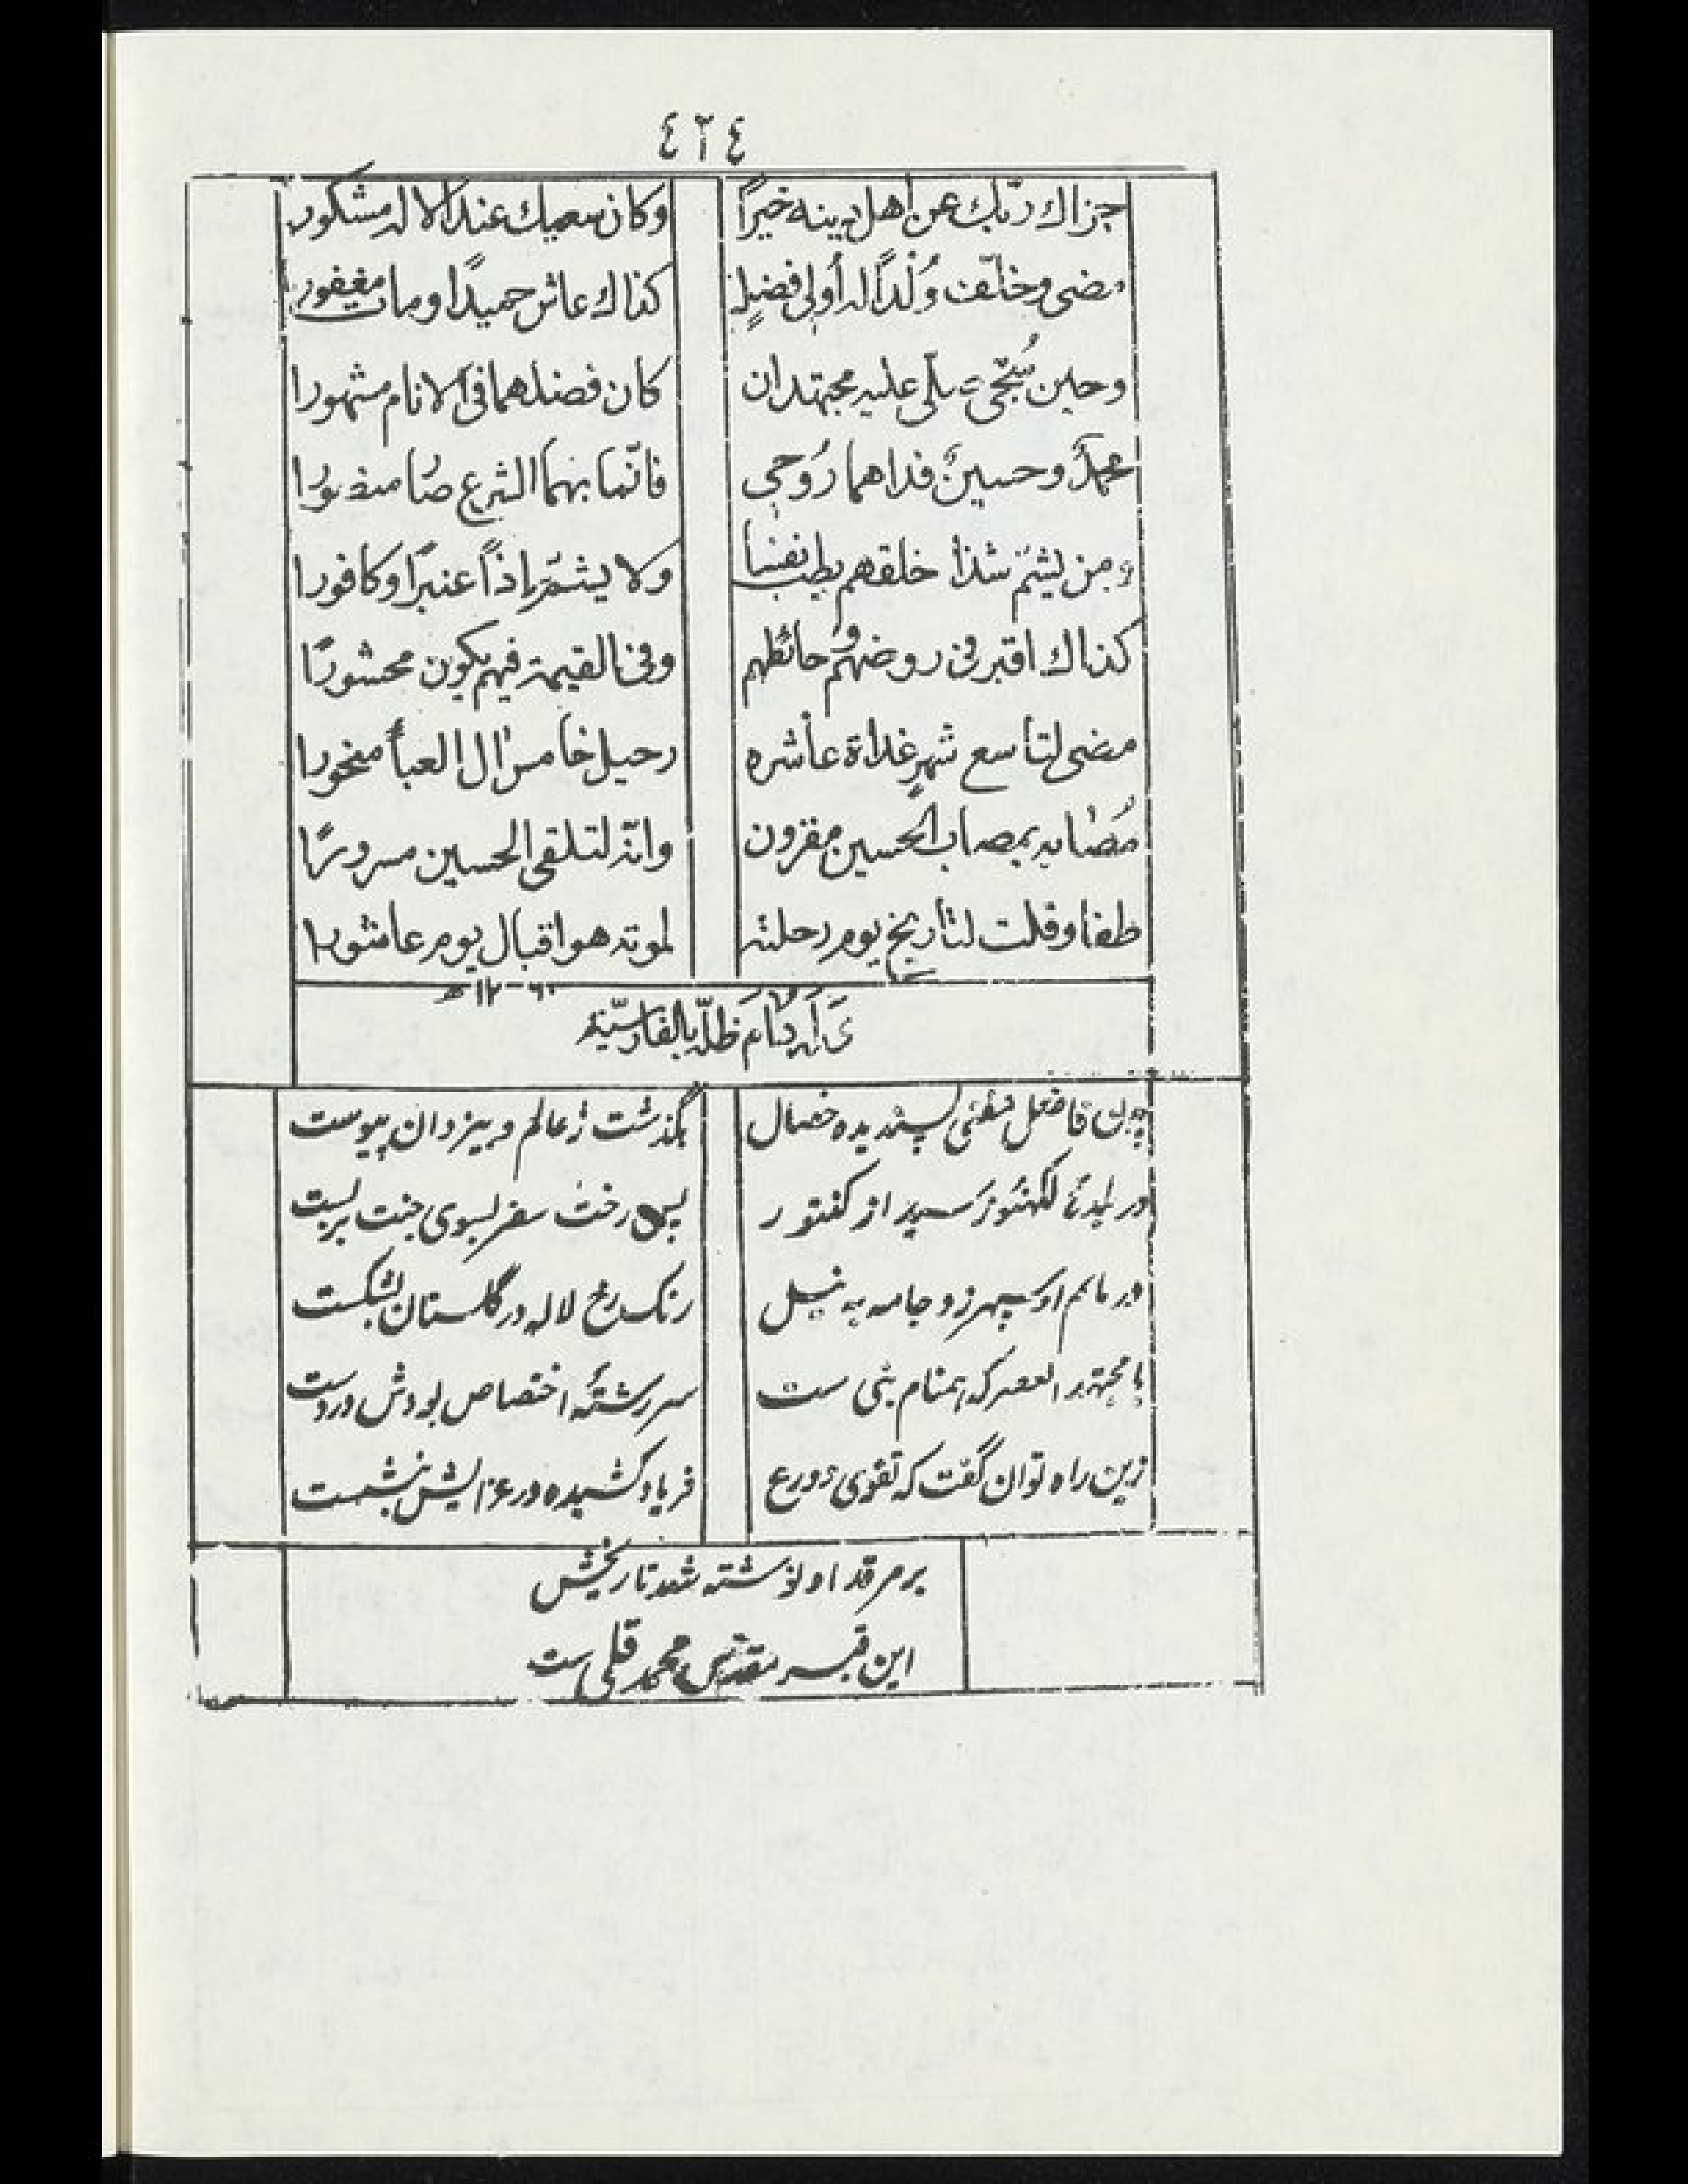 ٤٢٤
جزاك ربّك عن اهل دينه خيرًا وكان سعيك عند الاله مشكورا
مضى وخلّف وُلْدًا له أولى فضلٍ كذاك عاش حميدًا ومات مغفورا
وحين سُجّى صلّى عليه مجتهدان كان فضلهما فى الانام مشهورا
محمدٌ وحسينٌ فداهما رُوحى فانّما بهما الشرع صار منصورا
ومن يشم شذا خلقهم يطب نفسا ولا يشمّ اذاً عنبرًا وكافورا
كذاك اقبر فى روضهم وحائطهم وفى القيمة فيهم يكون محشورًا
مضى لتاسع شهرٍ غداة عاشره رحيل خامس ال العبا منحورا
مُصابه بمصاب الحسين مقرون وانّه لتلقى الحسين مسرورًا
وقلت لتاريخ يوم رحلته لموته هو اقبال يوم عاشورا
١٢٦٠ھ
دام ظلّه بالفارسيّة
چون فاضل مفتى پسنديده خصال بگذشت ز عالم و بيزدان پيوست
در بلدۀ لكهنئو رسيد از كنتور پس رخت سفر بسوى جنت بربست
در ماتم او سپهر زد جامه به نيل رنگ رخ لاله در گلستان بشكست
با مجتهد العصر كه همنام نبى ست سررشتۀ اختصاص بودش در دست
زين راه توان گفت كه تقوى و ورع فرياد كشيده در عزايش بنشست
بر مرقد او نوشته شد تاريخش
اين قبر مقدس محمد قلى ست